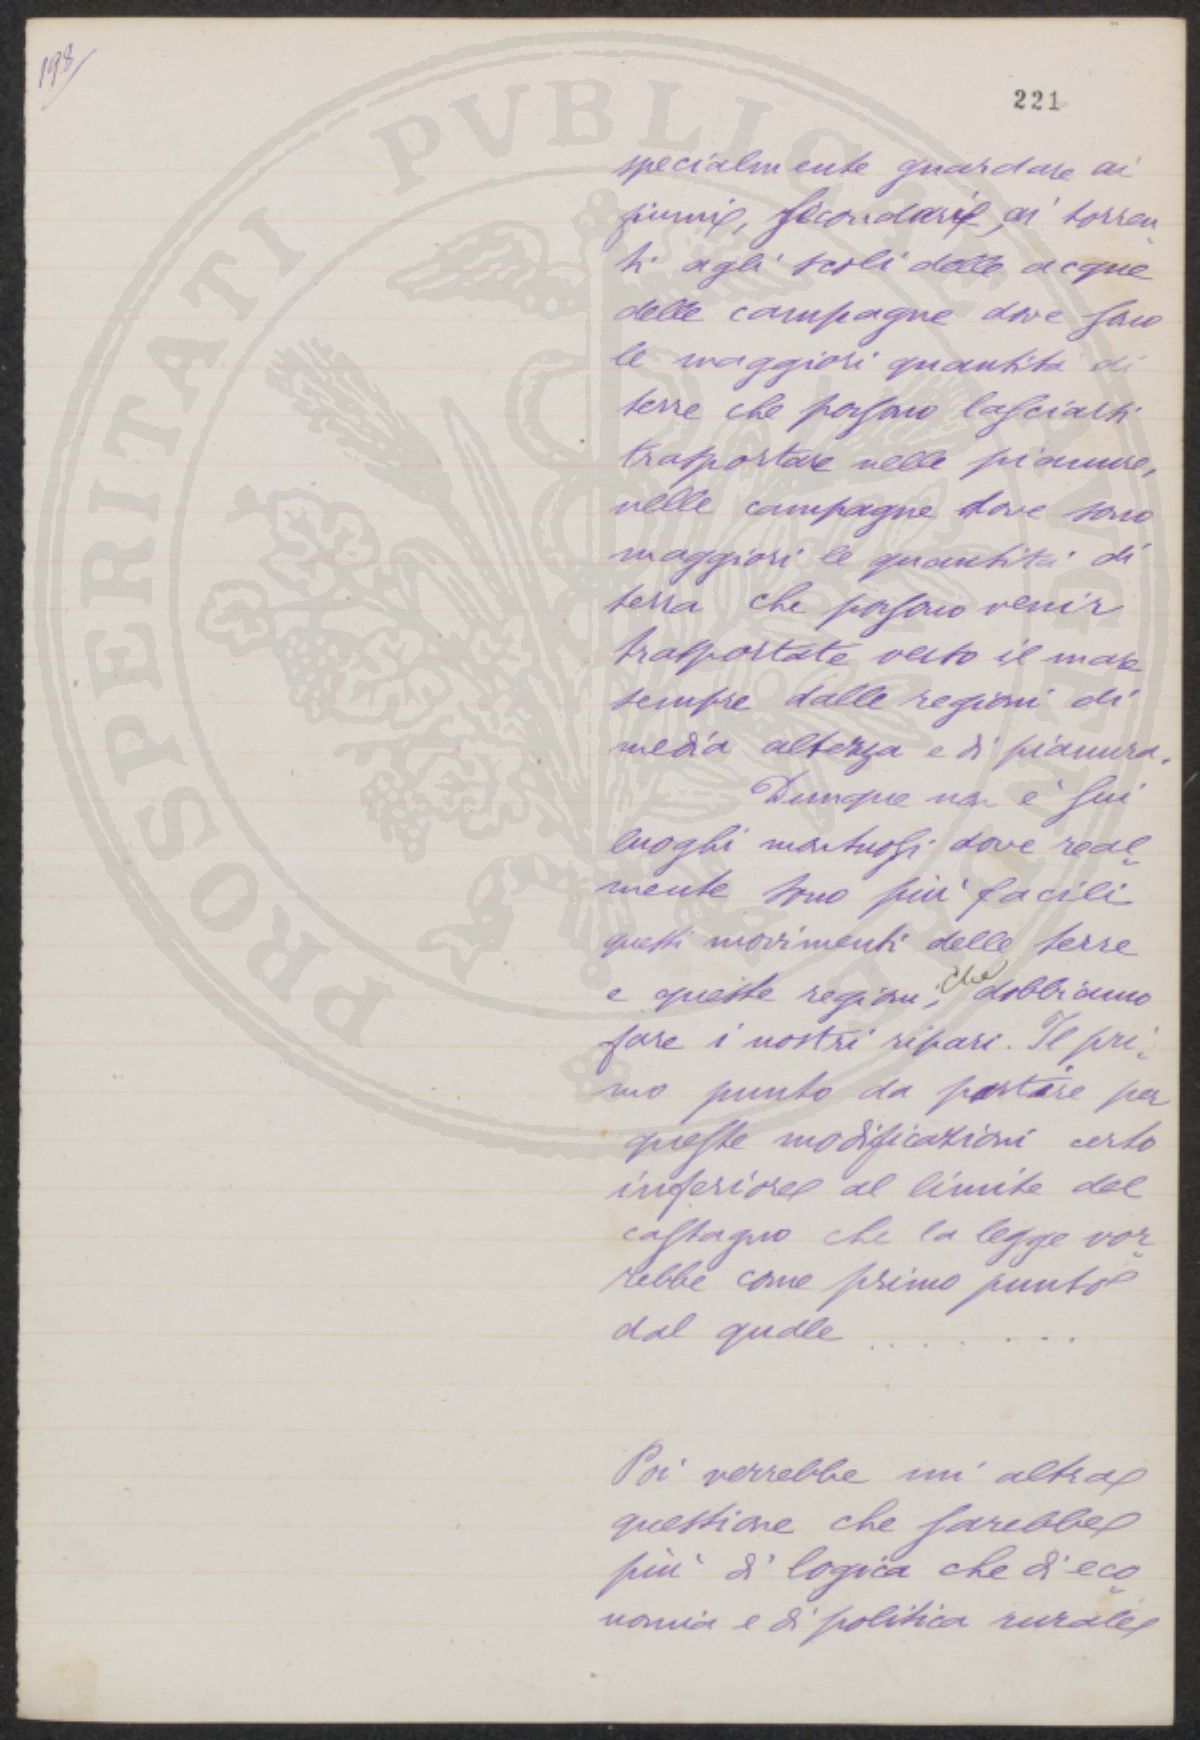 198
221
PROSPERITATI PVBLICAE
specialmente guardare ai
fiumi, secondari, ai torren-
ti agli scoli delle acque
delle campagne dove sono
le maggiori quantità di
terre che possono lasciarsi
trasportare nelle pianure,
nelle campagne dove sono
maggiori le quantità di
terra che possono venir
trasportate verso il mare
sempre dalle regioni di
media altezza e di pianura.
Dunque non è sui
luoghi montuosi dove real-
mente sono più facili
questi movimenti delle terre
e queste regioni; che dobbiamo
fare i nostri ripari. Il pri-
mo punto da partire per
queste modificazioni certo
inferiore al limite del
castagno che la legge vor-
rebbe come primo punto
dal quale . . . . . . .
Poi verrebbe un'altra
questione che sarebbe
più di logica che di eco-
nomia e di politica rurale